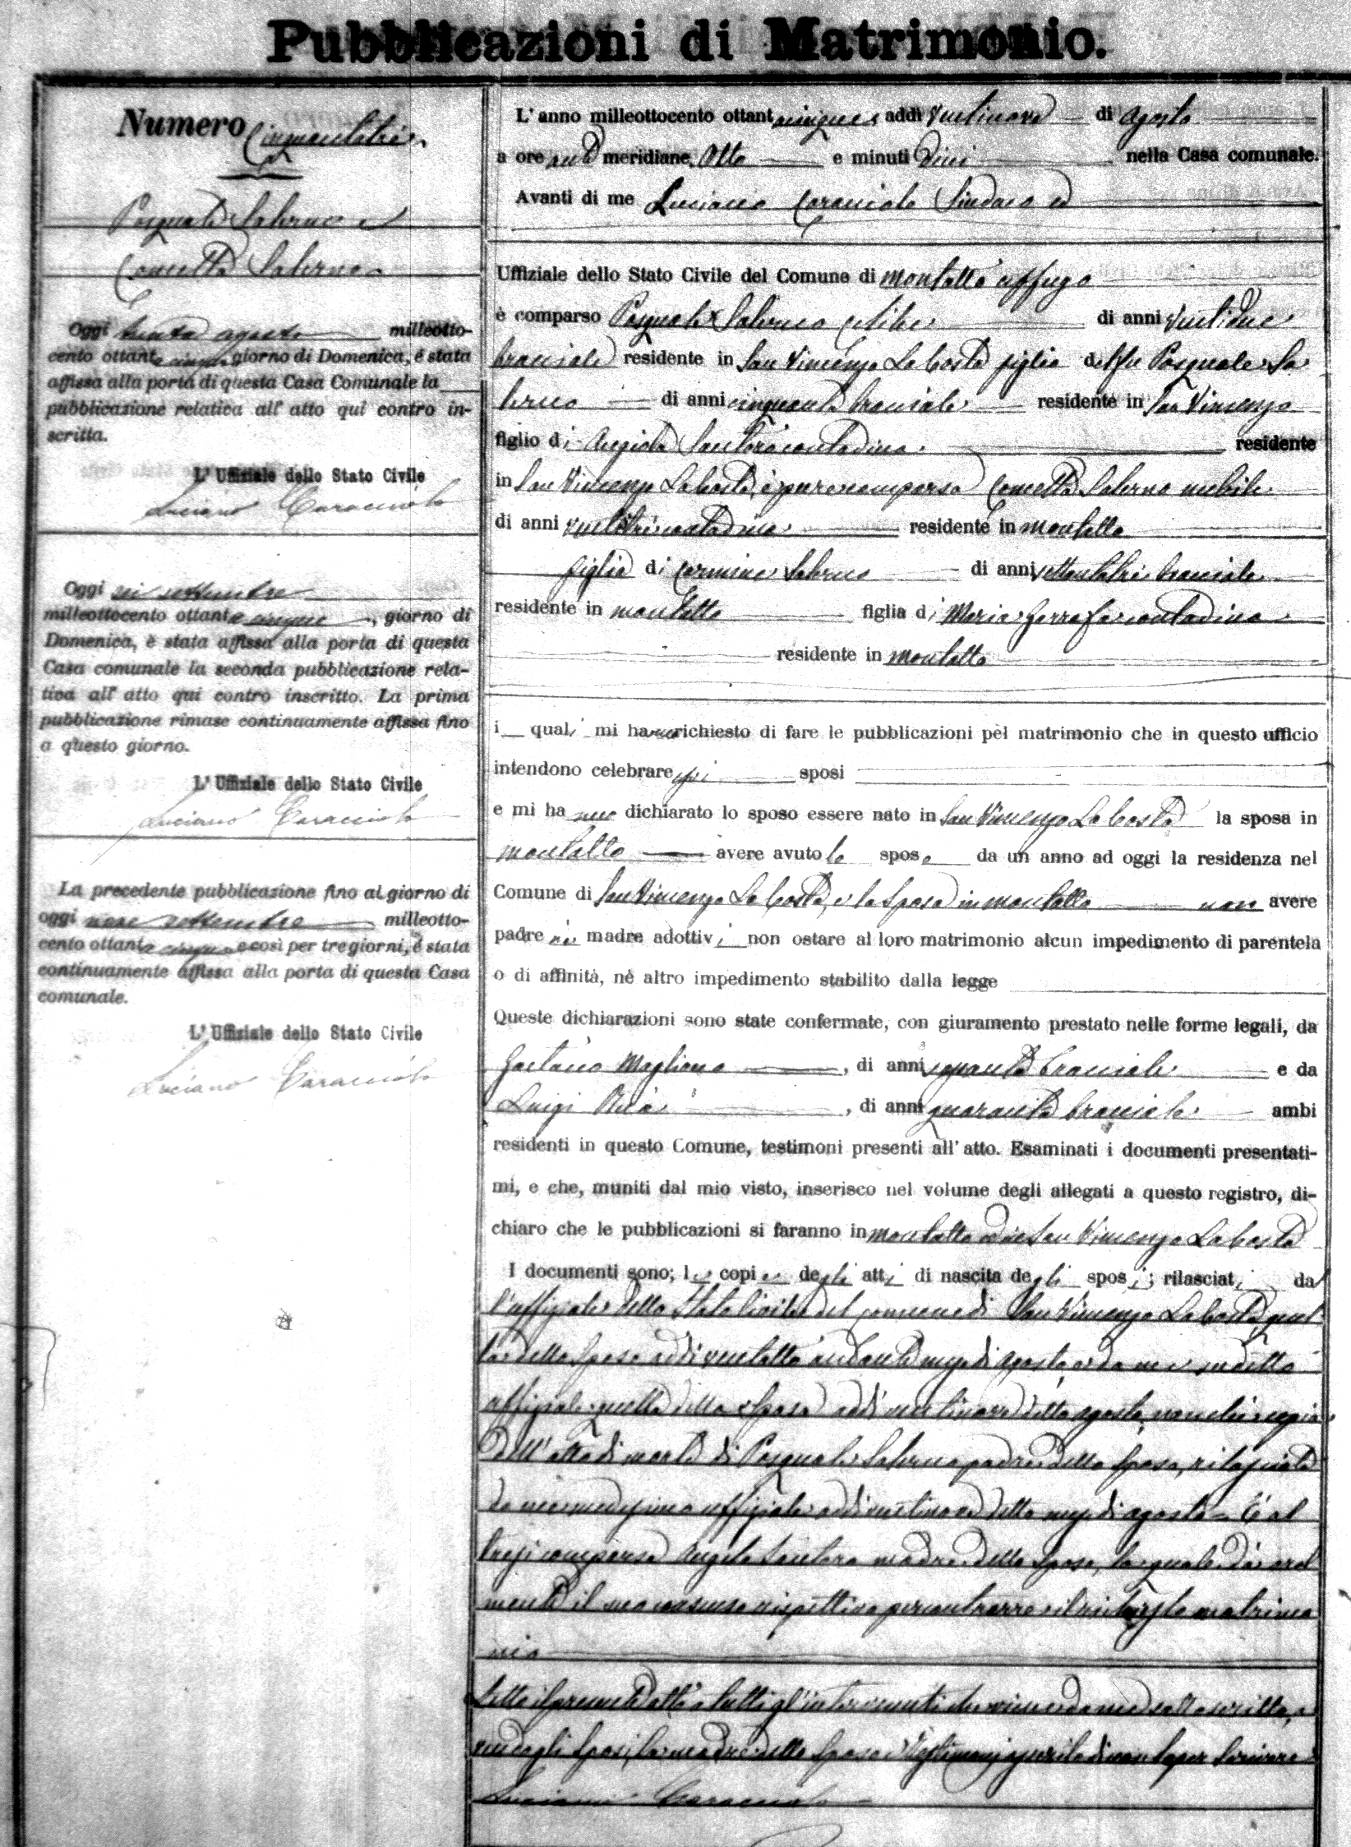 Pubblicazioni di Matrimonio.
Numero Cinquantatre
Pasquale Salerno e
Concetta Salerno
Oggi trenta agosto milleotto-
cento ottantacinque giorno di Domenica, è stata
affissa alla porta di questa Casa Comunale la
pubblicazione relatica all' atto qui contro in-
scritta.
L' Uffiziale dello Stato Civile
Luciano Caracciolo
Oggi sei settembre
milleottocento ottantacinque, giorno di
Domenica, è stata affissa alla porta di questa
Casa comunale la seconda pubblicazione rela-
tiva all' atto qui contro inscritto. La prima
pubblicazione rimase continuamente affissa fino
a questo giorno.
L' Uffiziale dello Stato Civile
Luciano Caracciolo
La precedente pubblicazione fino al giorno di
oggi nove settembre milleotto-
cento ottantacinque e così per tre giorni, è stata
continuamente affissa alla porta di questa Casa
comunale.
L' Uffiziale dello Stato Civile
Luciano Caracciolo
L' anno milleottocento ottantacinque addì ventinove di agosto
a ore anti meridiane otto e minuti dieci nella Casa comunale.
Avanti di me Luciano Caracciolo Sindaco ed
Uffiziale dello Stato Civile del Comune di Montalto Uffugo
è comparso Pasquale Salerno celibe di anni ventidue
bracciale residente in San Vincenzo La Costa figlio del fu Pasquale Sa
lerno di anni cinquanta bracciale residente in San Vincenzo
figlio di Angiola Santoro contadina residente
in San Vincenzo La Costa, è pure comparsa Concetta Salerno nubile
di anni ventitre contadina residente in Montalto
figlia di Carmine Salerno di anni settantatre bracciale
residente in Montalto figlia di Maria contadina
residente in Montalto
i quali mi hanno richiesto di fare le pubblicazioni pel matrimonio che in questo ufficio
intendono celebrare essi sposi
e mi hanno dichiarato lo sposo essere nato in San Vincenzo La Costa la sposa in
Montalto avere avuto lo sposo da un anno ad oggi la residenza nel
Comune di San Vincenzo La Costa, e la sposa in Montalto non avere
padre nè madre adottivi non ostare al loro matrimonio alcun impedimento di parentela
o di affinità, né altro impedimento stabilito dalla legge
Queste dichiarazioni sono state confermate, con giuramento prestato nelle forme legali, da
Gaetano Magliano, di anni bracciale e da
Luigi, di anni quaranta bracciale ambi
residenti in questo Comune, testimoni presenti all' atto. Esaminati i documenti presentati-
mi, e che, muniti dal mio visto, inserisco nel volume degli allegati a questo registro, di-
chiaro che le pubblicazioni si faranno in Montalto ed in San Vincenzo La Costa
I documenti sono; le copie degli atti di nascita degli sposi; rilasciati da
l'uffiziale dello Stato Civile del comune di San Vincenzo La Costa quel
la dello sposo addi ventotto andante mese di agosto e da me sudetto
uffiziale quella della sposa addì ventinove detto agosto, nonchè copia
dell' atto di morte di Pasquale Salerno padre dello sposo, rilasciata
da me medesimo uffiziale addì ventinove detto mese di agosto - È al
tresì comparsa Angela Santoro madre dello sposo, la quale dà oral
mente il suo consenso rispettivo per contrarre il richiesto matrimo
nio
Letto il presente atto a tutti gl'intervenuti che viene da me sottoscritto,
avendo gli sposi, la madre dello sposo e testimoni asserito di non saper scrivere
Luciano Caracciolo